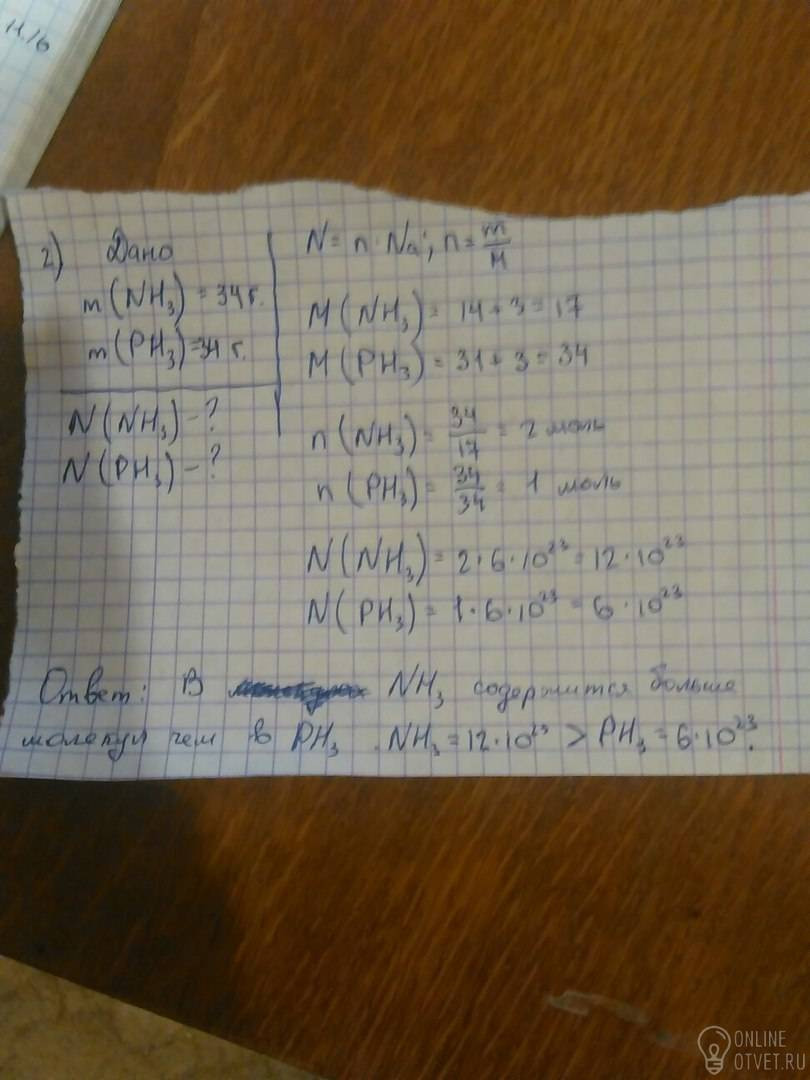 11.16
2) Дано
m(NH₃) = 34 г.
m(PH₃) = 34 г.
N(NH₃) - ?
N(PH₃) - ?
N = n · Na; n = m/M
M(NH₃) = 14 + 3 = 17
M(PH₃) = 31 + 3 = 34
n(NH₃) = 34/17 = 2 моль
n(PH₃) = 34/34 = 1 моль
N(NH₃) = 2 · 6 · 10²³ = 12 · 10²³
N(PH₃) = 1 · 6 · 10²³ = 6 · 10²³
Ответ: В NH₃ содержится больше
молекул чем в PH₃. NH₃ = 12 · 10²³ > PH₃ = 6 · 10²³.
ONLINE
OTVET.RU